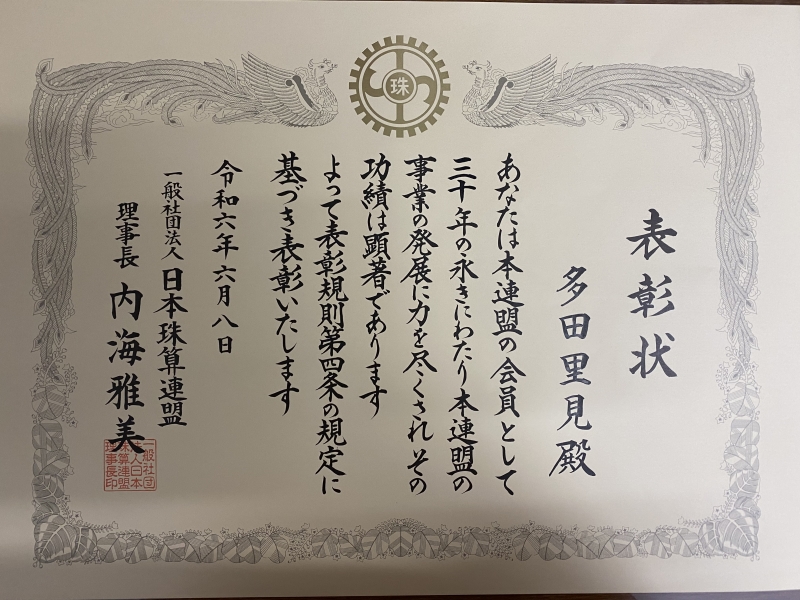 珠
表彰状
多田里見殿
あなたは本連盟の会員として
三十年の永きにわたり本連盟の
事業の発展に力を尽くされその
功績は顕著であります
よって表彰規則第四条の規定に
基づき表彰いたします
令和六年六月八日
一般社団法人日本珠算連盟
理事長 内海雅美
一般社団
法人日本
珠算連盟
理事長印